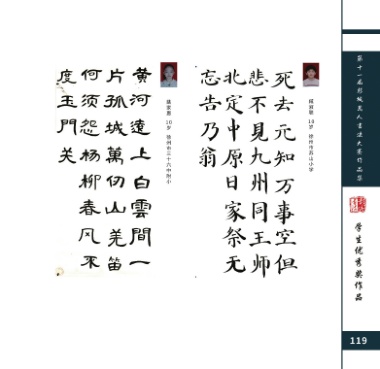 死去元知万事空但
悲不見九州同王师
北定中原日家祭无
忘告乃翁
14岁
黄河遠上白雲間一
片孤城萬仞山羌笛
何须怨杨柳春风不
度玉門关
10岁 徐州市三十六中附小
学生优秀奖作品
119